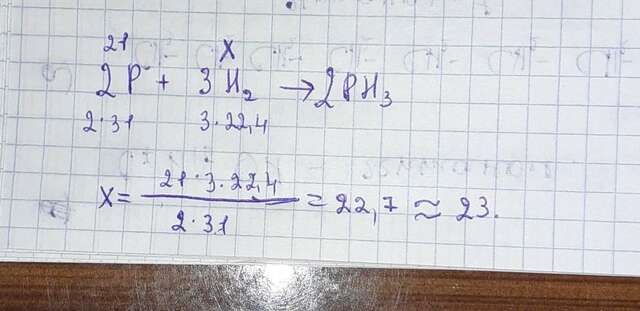 21 X
2P + 3H₂ → 2PH₃
2·31 3·22,4
X = 21·3·22,4 / 2·31 = 22,7 ≈ 23.